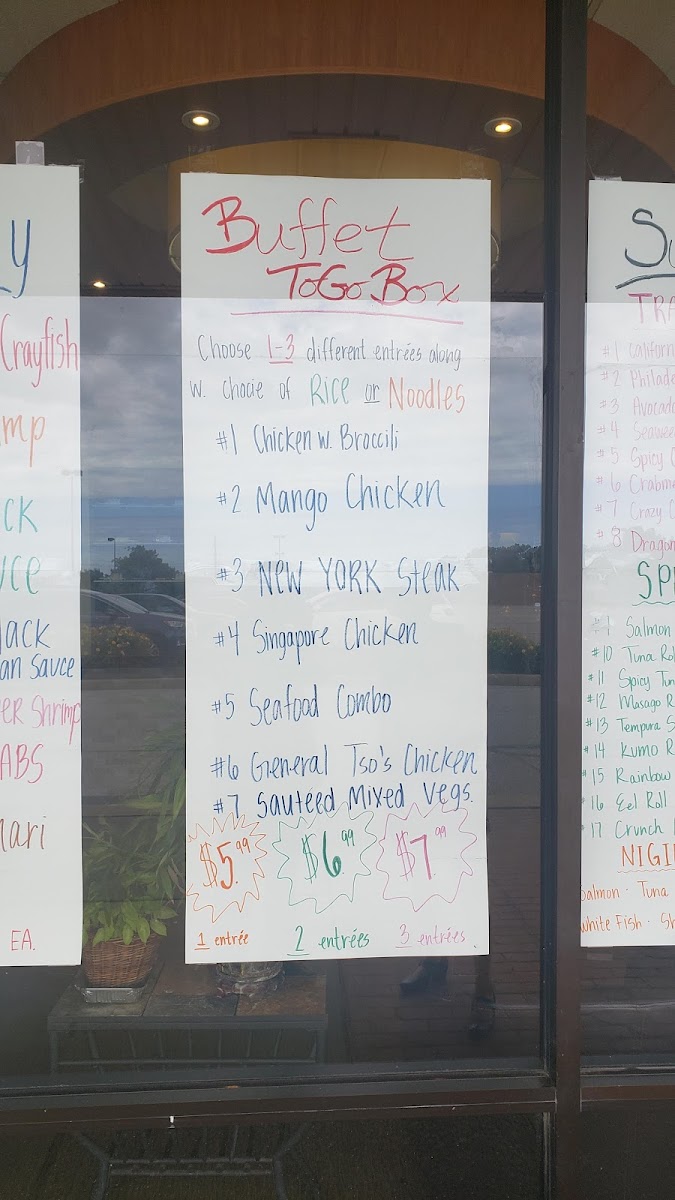 y
Crayfish
mp
ck
uce
Jack
an Sauce
er Shrimp
ABS
mari
EA.
Buffet
ToGo Box
Choose 1-3 different entrées along
w. chocie of Rice or Noodles
#1 Chicken w. Broccili
#2 Mango Chicken
#3 NEW YORK Steak
#4 Singapore Chicken
#5 Seafood Combo
#6 General Tso's Chicken
#7 Sautéed Mixed Vegs.
$5.99 $6.99 $7.99
1 entrée 2 entrées 3 entrées
Su
TRA
#1 Californ
#2 Philade
#3 Avocado
#4 Seawee
#5 Spicy C
#6 Crabm
#7 Crazy C
#8 Dragon
SP
#9 Salmon
#10 Tuna Rol
#11 Spicy Tun
#12 Masago R
#13 Tempura S
#14 Kumo R
#15 Rainbow
#16 Eel Roll
17 Crunch
NIGI
Salmon · Tuna
White Fish · Sh